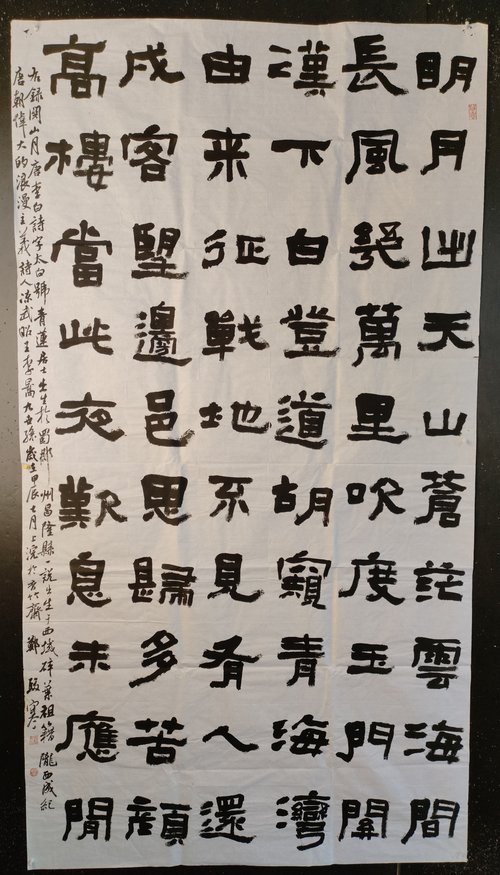 明月出天山蒼茫雲海間
長風幾萬里吹度玉門関
漢下白登道胡窺青海灣
由来征戰地不見有人還
戍客望邊邑思歸多苦顏
高樓當此夜歎息未應閒
右錄関山月唐李白詩字太白號青蓮居士出生於蜀郡州昌隆縣一說出生于西域碎葉祖籍隴西成紀
唐朝偉大的浪漫主義詩人涼武昭王李暠九世孫歲在甲辰七月上浣於竹齋鄭寒